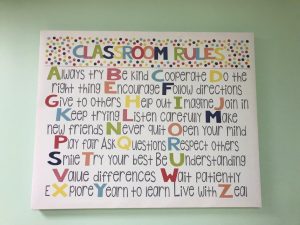 CLASSROOM RULES
Always try Be kind Cooperate Do the
right thing Encourage Follow directions
Give to others Help out Imagine Join in
Keep trying Listen carefully Make
new friends Never quit Open your mind
Play fair Ask Questions Respect others
Smile Try your best Be Understanding
Value differences Wait patiently
EXplore Yearn to learn Live with Zeal